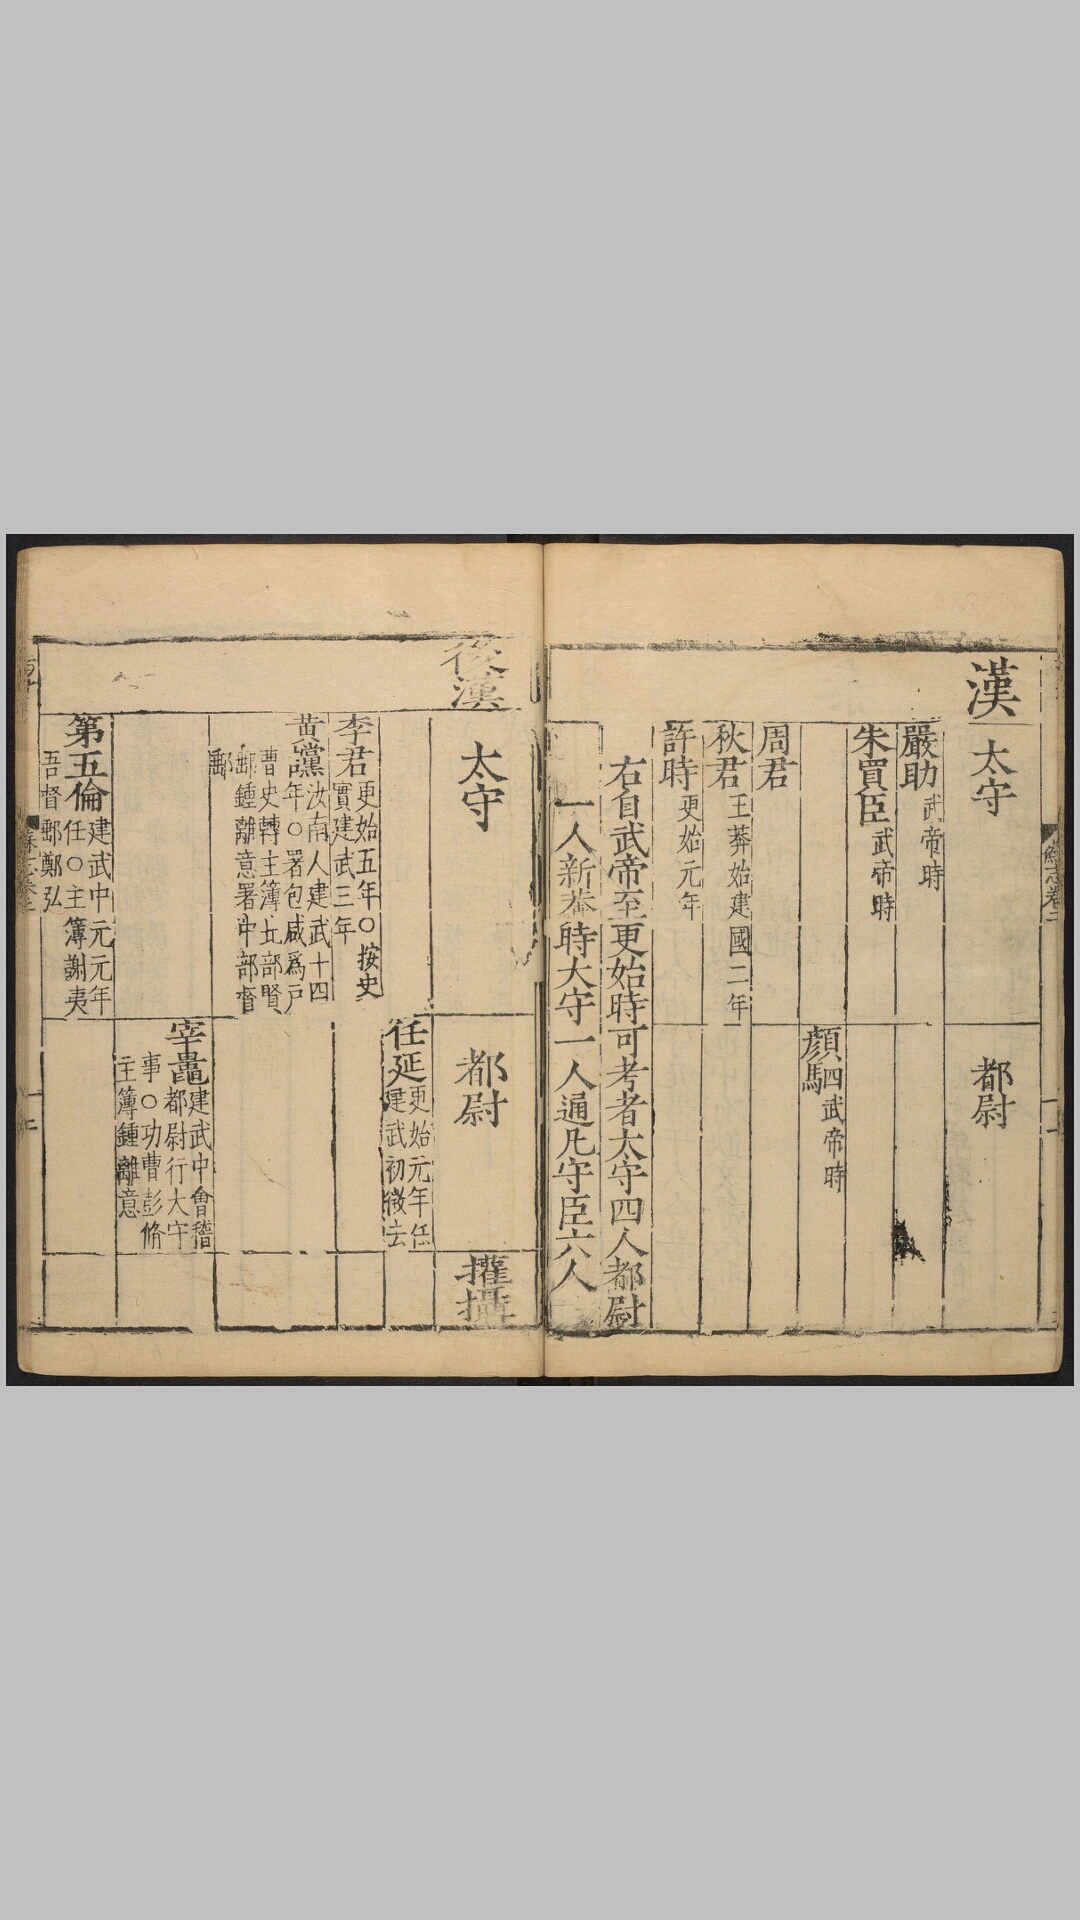 漢
太守
都尉
嚴助武帝時
朱買臣武帝時
顏駟武帝時
周君
秋君王莽始建國二年
許時更始元年
右自武帝至更始時可考者太守四人都尉
一人新莽時大守一人通凡守臣六人
後漢
太守
都尉
攉攝
任延更始元年任
建武初徵去
李君更始五年○按史
實建武三年
黃讜汝南人建武十四
年○署包咸爲戶
曹史轉主簿丘部賢
郵鍾離意署中部督
郵
宰鼂建武中會稽
都尉行大守
事○功曹彭脩
主簿鍾離意
第五倫建武中元元年
任○主簿謝夷
吾督郵鄭弘